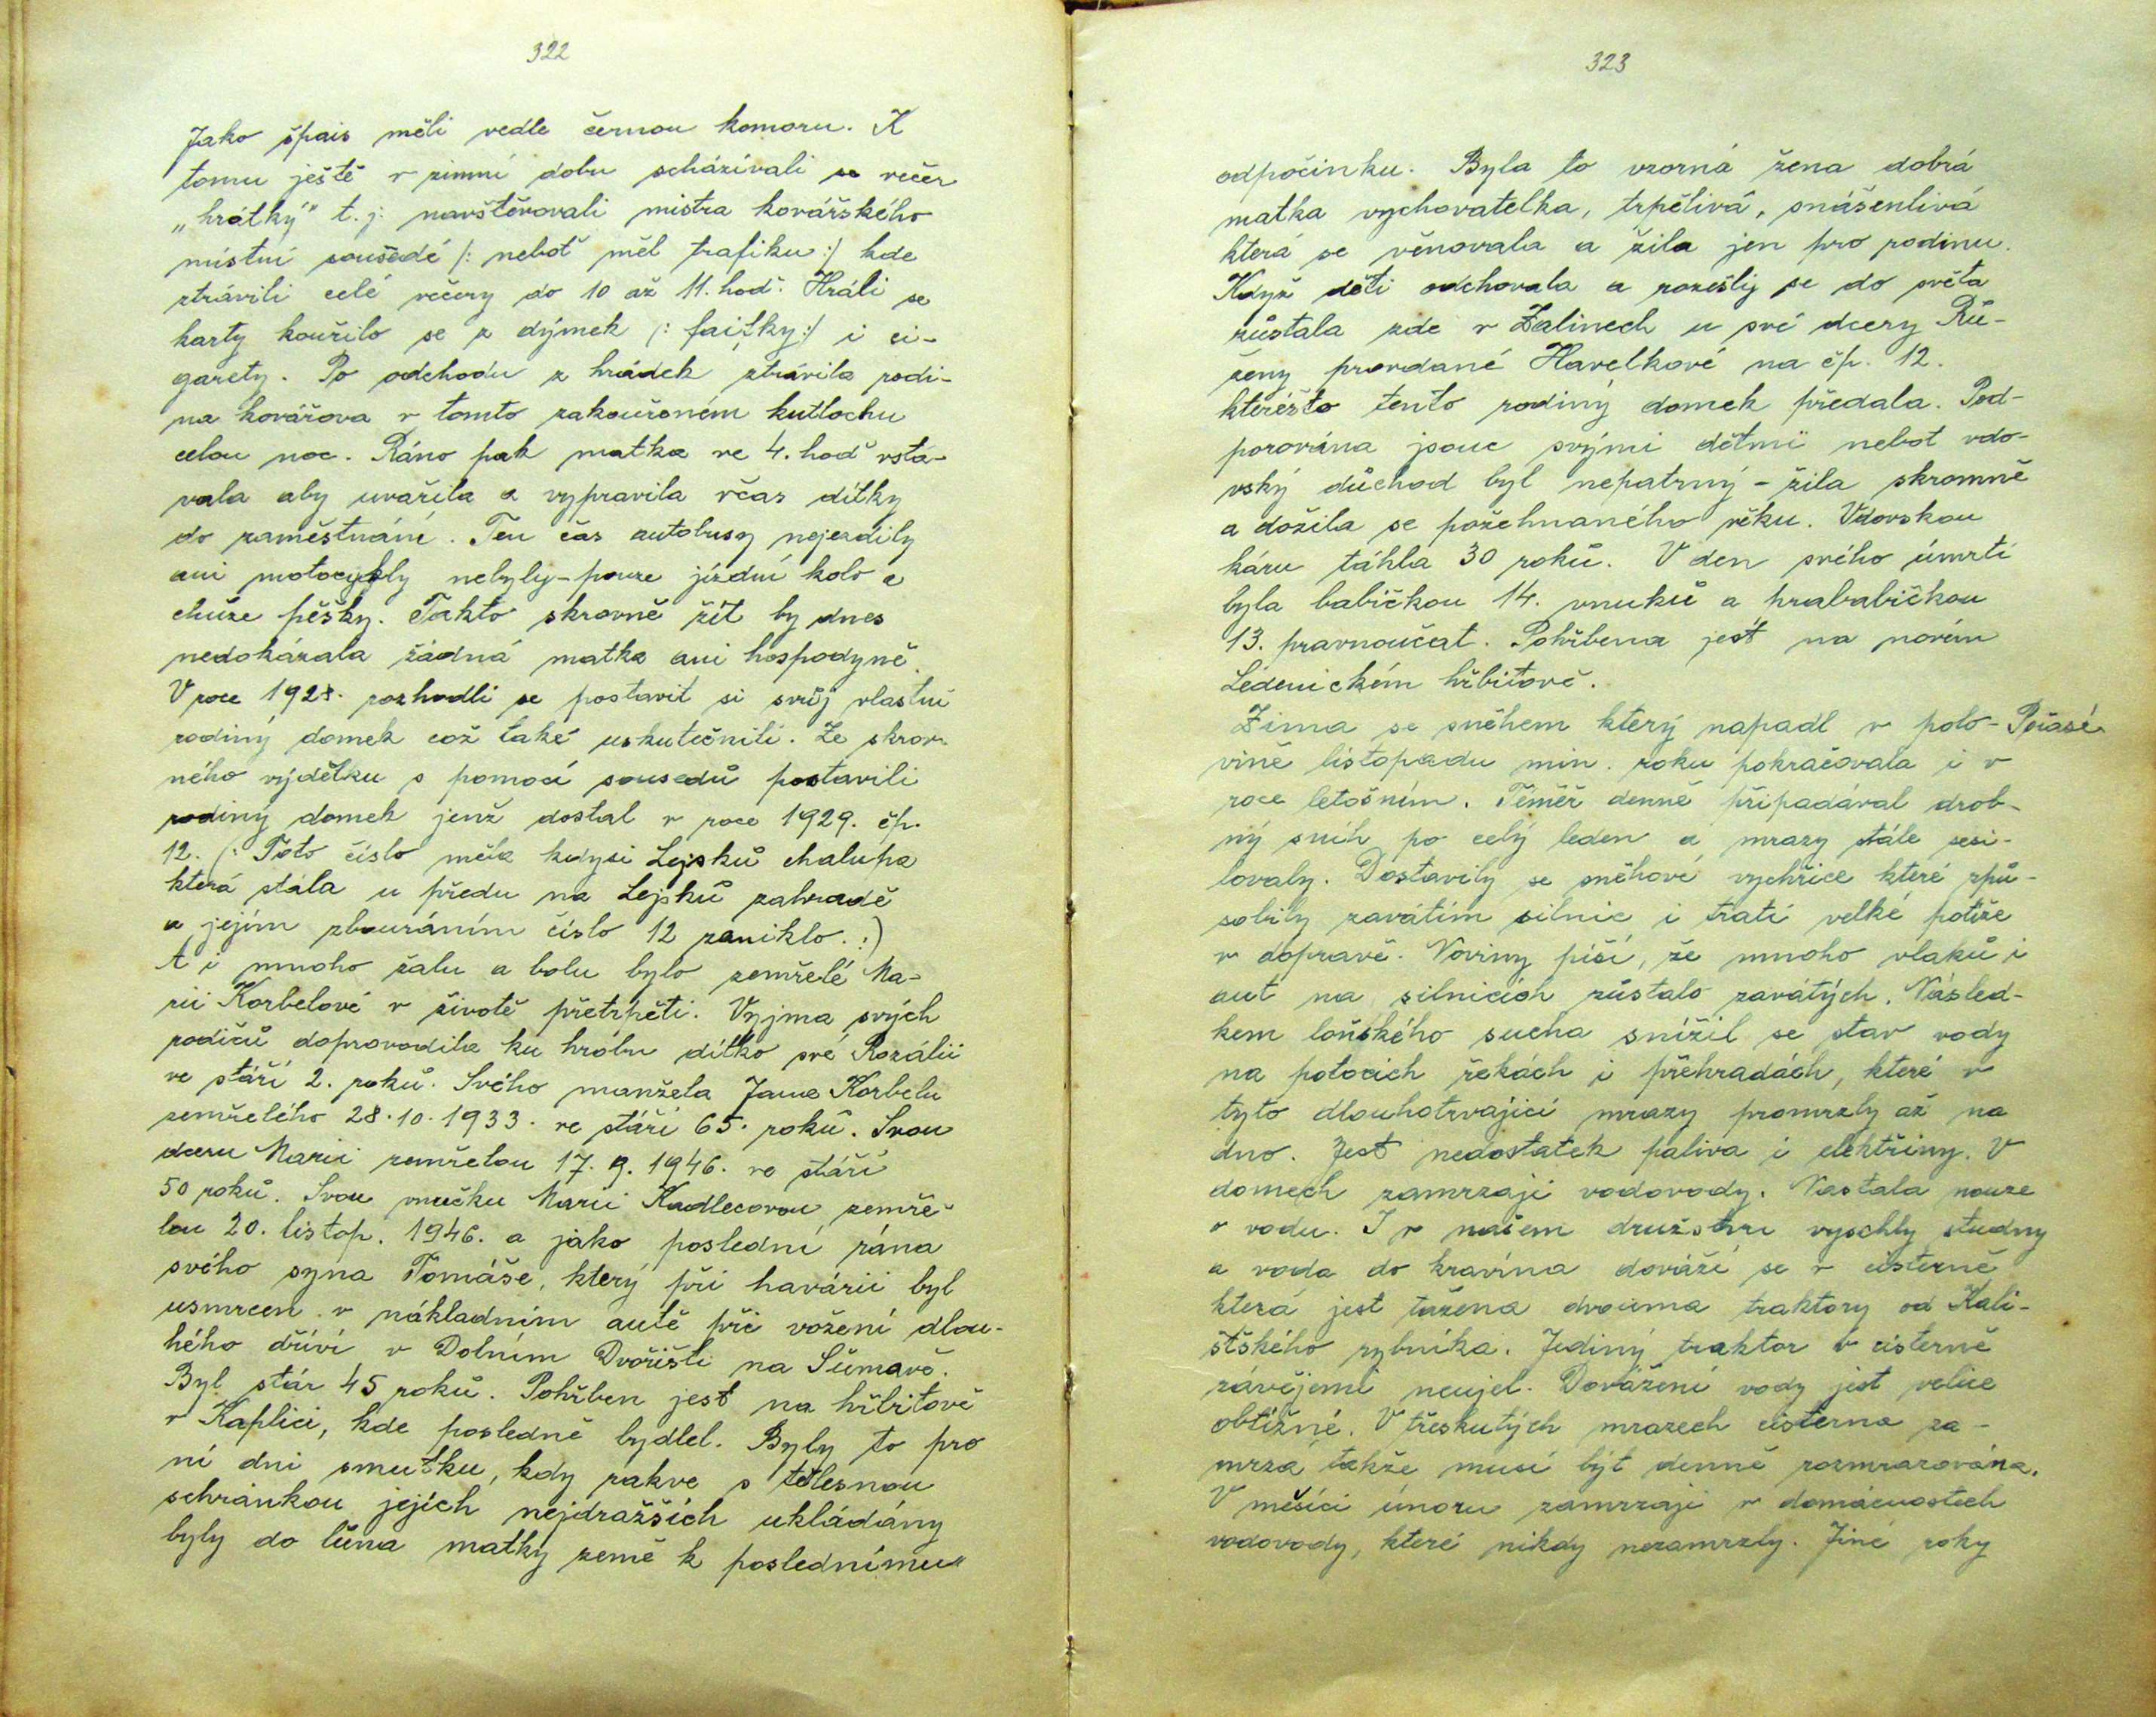 322
Jako špais měli vedle černou komoru. K
tomu ještě v zimní dobu scházívali se večer
„hrátký" t.j. navštěvovali mistra kovářského
místní sousedé /: neboť měl trafiku :/ kde
ztrávili celé večery do 10 až 11. hod. Hráli se
karty kouřilo se z dýmek /: faifky :/ i ci-
garety. Po odchodu z hrádek ztrávila rodi-
na kovářova v tomto zakouřeném kutlochu
celou noc. Ráno pak matka ve 4. hod vstá-
vala aby uvařila a vypravila včas dítky
do zaměstnání. Ten čas autobusy nejezdily
ani motocykly nebyly - pouze jízdní kolo a
chůze pěšky. Takto skrovně žít by dnes
nedokázala žádná matka ani hospodyně.
V roce 1928. rozhodli se postavit si svůj vlastní
rodiný domek což také uskutečnili. Ze skrov-
ného výdělku s pomocí sousedů postavili
rodiný domek jenž dostal v roce 1929. čp.
12. /: Toto číslo měla kdysi Lejsků chalupa
která stála u předu na Lejsků zahradě
a jejím zbouráním číslo 12 zaniklo. :)
A i mnoho žalu a bolu bylo zemřelé Ma-
rii Korbelové v životě přetrpěti. Vyjma svých
rodičů doprovodila ku hrobu dítko své Rozálii
ve stáří 2. roků. Svého manžela Jana Korbelu
zemřelého 28.10.1933. ve stáří 65. roků. Svou
dceru Marii zemřelou 17.9.1946. ve stáří
50 roků. Svou vnučku Marii Kadlecovou zemře-
lou 20. listop. 1946. a jako poslední rána
svého syna Tomáše, který při havárii byl
usmrcen v nákladním autě při vožení dlou-
hého dříví v Dolním Dvořišti na Šumavě.
Byl stár 45 roků. Pohřben jest na hřbitově
v Kaplici, kde posledně bydlel. Byly to pro
ní dni smutku, kdy rakve s tělesnou
schránkou jejích nejdražších ukládány
byly do lůna matky země k poslednímu"
323
odpočinku. Byla to vzorná žena dobrá
matka vychovatelka, trpělivá, snášenlivá
která se věnovala a žila jen pro rodinu.
Když děti odchovala a rozešly se do světa
zůstala zde v Zalinech u své dcery Rů-
ženy provdané Havelkové na čp. 12.
kterésto tento rodiný domek předala. Pod-
porována jsouc svými dětmi nebot vdo-
vský důchod byl nepatrný - žila skromně
a dožila se požehnaného věku. Vdovskou
káru táhla 30 roků. V den svého úmrtí
byla babičkou 14. vnuků a prababičkou
13. pravnoučat. Pohřbena jest na novém
Ledenickém hřbitově.
Zima se sněhem který napadl v polo- Počasí
vině listopadu min. roku pokračovala i v
roce letošním. Téměř denně připadával drob-
ný sníh po celý leden a mrazy stále sesi-
lovaly. Dostavily se sněhové vychřice které způ-
sobily zavátím silnic i tratí velké potíže
v dopravě. Noviny píší, že mnoho vlaků i
aut na silnicích zůstalo zavátých. Násled-
kem loňského sucha snížil se stav vody
na potocích řekách i přehradách, které v
tyto dlouhotrvající mrazy promrzly až na
dno. Jest nedostatek paliva i elektřiny. V
domech zamrzají vodovody. Nastala nouze
o vodu. I v našem družstvu vyschly studny
a voda do kravína dováží se v cisterně
která jest tažena dvouma traktory od Kali-
šťského rybníka. Jediný traktor v cisterně
závějemi neujel. Dovážení vody jest velice
obtížné. V třeskutých mrazech cisterna za-
mrzá takže musí být denně rozmrazována.
V měsíci únoru zamrzají v domácnostech
vodovody, které nikdy nezamrzly. Jiné roky